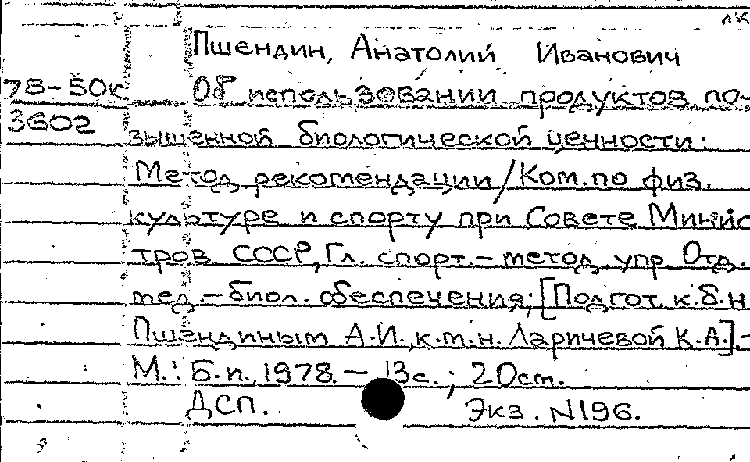 лк
Пшендин, Анатолий Иванович
78-50к Об использовании продуктов по-
3602
вышенной биологической ценности:
Метод. рекомендации/Ком. по физ.
культуре и спорту при Совете Минис
тров СССР, Гл. спорт.-метод. упр. Отд.
мед.-биол. обеспечения; [Подгот. к.б.н
Пшендиным А.И., к.т.н. Ларичевой К.А.].-
М.: Б.и., 1978. - 13с.; 20см.
ДСП. Экз. N196.